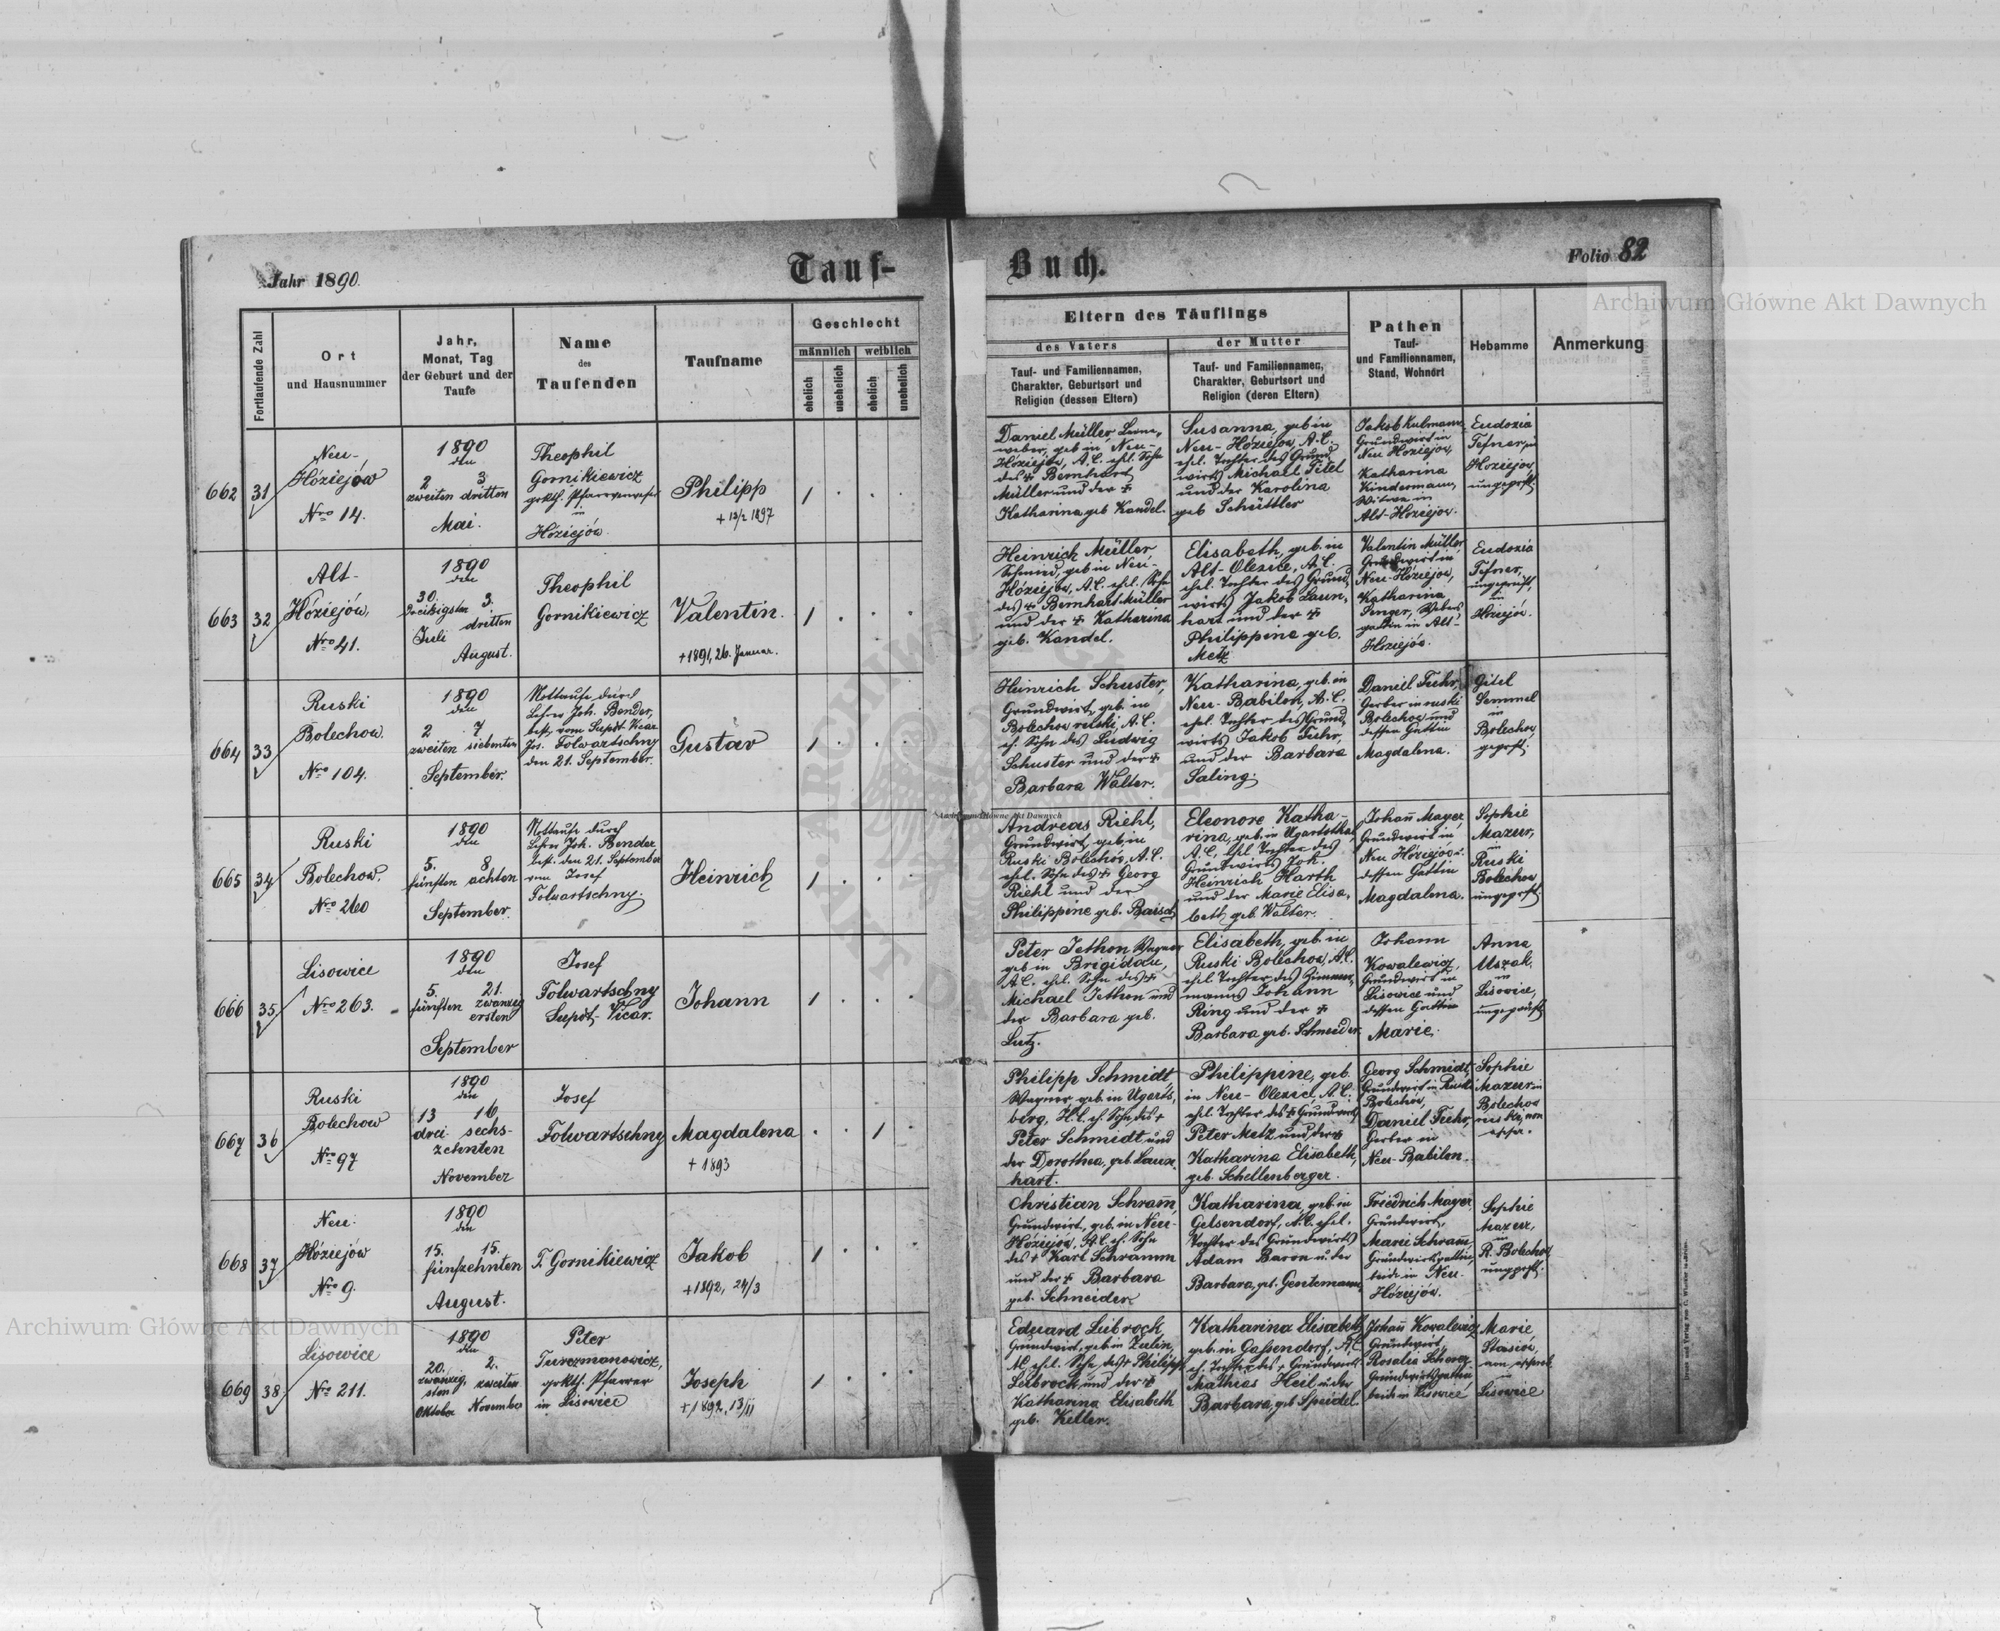 Jahr 1890.
Tauf-
Buch.
Folio 82
Archiwum Główne Akt Dawnych
Fortlaufende Zahl
Ort
und Hausnummer
Jahr,
Monat, Tag
der Geburt und der
Taufe
Name
des
Taufenden
Taufname
Geschlecht
männlich
weiblich
ehelich
unehelich
ehelich
unehelich
Eltern des Täuflings
des Vaters
Tauf- und Familiennamen,
Charakter, Geburtsort und
Religion (dessen Eltern)
der Mutter
Tauf- und Familiennamen,
Charakter, Geburtsort und
Religion (deren Eltern)
Pathen
Tauf-
und Familiennamen,
Stand, Wohnort
Hebamme
Anmerkung
662
31
Neu-
Hóziejów
Nro 14.
1890
den
2 3
zweiten dritten
Mai.
Theophil
Gornikiewicz
in
Hóziejów
Philipp
+ 13/2 1897
Daniel Müller
weber, geb in Neu-
Hóziejów, A.C. ehl. Sohn
des + Bernhard
Müller und der +
Katharina geb Kandel.
Susanna, geb in
Neu-Hóziejów A.C.
ehl. Tochter des Grund
wirts Michael Pitel
und der Karolina
geb Schüttler
Jakob Kulmann
Grundwirt in
Neu Hoziejow,
Katharina
Kindermann,
Witwe in
Alt-Hoziejow.
Eudozia
Hoziejow,
ungeprft.
663
32
Alt-
Hóziejów,
Nro 41.
1890
den
30. 3.
Dreißigsten dritten
Juli
August.
Theophil
Gornikiewicz
Valentin.
+ 1891, 26. Januar.
Heinrich Müller,
Schmied, geb in Neu-
Hóziejów, A.C. ehl. Sohn
des + Bernhart Müller
und der + Katharina
geb. Kandel.
Elisabeth, geb. in
Alt-Olexice, A.C.
ehl. Tochter des Grund,
wirts Jakob Laun,
hart und der +
Philippina geb.
Metz
Valentin Müller
Grundwirt in
Neu-Hóziejów,
Katharina
gattin in Alt-
Hóziejów.
Eudozia
ungeprüft,
in
Hóziejó.
664
33
Ruski
Bolechow.
Nro 104.
1890
den
2 7
zweiten siebenten
September.
Nottaufe durch
Lehrer Joh. Bender,
best. vom Supdt. Vicar
Jos. Folwartschny
den 21. September.
Gustav
Heinrich Schuster,
Grundwirt, geb. in
Bolechow ruski A.C.
eh. Sohn des Ludwig
Schuster und der +
Barbara Walter.
Katharina, geb. in
Neu-Babilon, A.C.
ehel. Tochter des Grund,
wirts Jakob Fuhr,
und der Barbara
Saling.
Daniel Fuhr,
Gerber in ruski
Bolechow und
dessen Gattin
Magdalena.
Gitel
Semmel
in
Bolechow,
geprft.
665
34
Ruski
Bolechow.
Nro 260
1890
den
5. 8.
fünften achten
September.
Nottaufe durch
Lehrer Joh. Bender
best. den 21. September
vom Josef
Folwartschny.
Heinrich
Archiwum Główne Akt Dawnych
Andreas Riehl,
Grundwirt, geb. in
Ruski Bolechów, A.C.
ehel. Sohn des + Georg
Riehl und der
Philippine geb. Baisch
Eleonore Katha-
rina, geb. in Ugartsthal,
A.C. ehl Tochter des
Grundwirts Joh.
Heinrich Harth
und der Marie Elisa,
beth geb. Walter.
Johann Mayer,
Grundwirt in
Neu Hóziejów u.
dessen Gattin
Magdalena.
Sophie
Mazur,
in
Ruski
Bolechow
ungeprft.
666
35
Lisowice
Nro 263.
1890
den
5. 21.
fünften zwanzig
ersten
September
Josef
Folwartschny
Supdt-Vicar.
Johann
Peter Jethon Wagner
geb in Brigidau,
A.C. ehl. Sohn des +
Michael Jethon und
der Barbara geb.
Lutz.
Elisabeth, geb. in
Ruski Bolechow, A.C.
ehl Tochter des Zimmer,
manns Johann
Ring und der +
Barbara geb. Schneider.
Johann
Kowalewicz,
Grundwirt in
Lisowice und
dessen Gattin
Marie.
Anna
Uszak,
in
Lisowice,
ungeprüft
667
36
Ruski
Bolechow
Nro 97
1890
den
13 16
drei sechs-
zehnten
November
Josef
Folwartschny
Magdalena
+ 1893
Philipp Schmidt,
Wagner geb. in Ugarts,
berg, H.C. eh. Sohn des +
Peter Schmidt und
der Dorothea, geb. Laun,
hart.
Philippine, geb.
in Neu-Olexice, A.C.
ehl. Tochter des + Grundwirts
Peter Metz und der +
Katharina Elisabeth,
geb. Schellenberger.
Georg Schmidt,
Grundwirt in Ruski
Bolechów,
Daniel Fuhr,
Gerber in
Neu-Babilon.
Sophie
Mazur in
Bolechow
ruski, non
668
37
Neu-
Hóziejów
Nro 9.
1890
den
15. 15.
fünfzehnten
August.
T. Gornikiewicz
Jakob
+ 1892, 24/3
Christian Schramm,
Grundwirt, geb. in Neu-
Hóziejów, A.C. eh. Sohn
des + Karl Schramm
und der + Barbara
geb. Schneider.
Katharina, geb. in
Gelsendorf, A.C. ehl.
Tochter des Grundwirts
Adam Baron u. der
Barbara, geb. Gentemann,
Friedrich Mayer,
Grundwirt,
Marie Schramm
Grundwirtsgattin,
beide in Neu-
Hóziejów.
Sophie
Mazur,
in
R. Bolechow
ungeprft.
669
38
Lisowice
Nro 211.
1890
den
20. 2.
zwanzig, zweiten
sten
Oktober November
Peter
Turczmanowicz,
grkth. Pfarrer
in Lisowice
Joseph
+ 1892, 13/II
Eduard Leibrock
Grundwirt, geb. in Zulin,
AC ehel. Sohn des + Philipp
Leibrock und der +
Katharina Elisabeth
geb. Keller.
Katharina Elisabeth
geb. in Gassendorf, A.C.
eh. Tochter des + Grundwirts
Mathias Heil u. der
Barbara, geb Speidel.
Johann Kowalewicz
Grundwirt,
Rosalia
Grundwirtsgattin
beide in Lisowice
Marie
in
Lisowice
Archiwum Główne Akt Dawnych